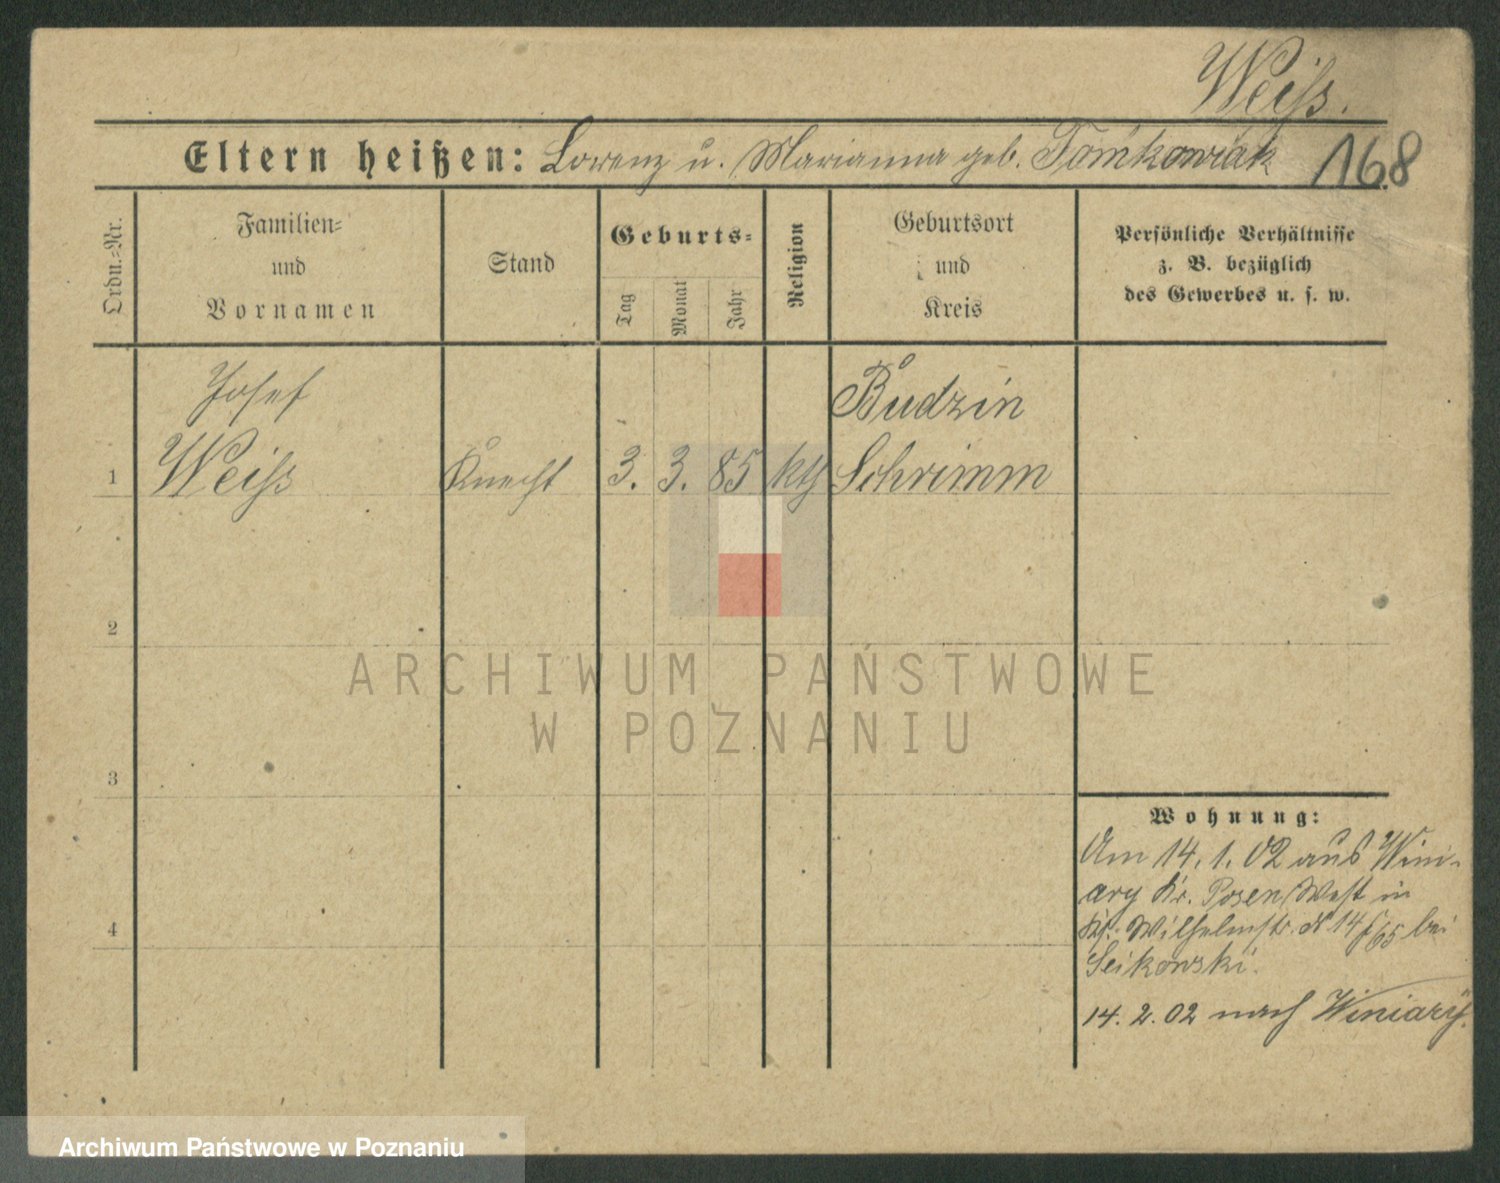 Weiss.
Eltern heißen: Lorenz u. Marianna geb. Tomkowiak 168
Ordn.-Nr.
Familien-
und
Vornamen
Stand
Geburts-
Tag
Monat
Jahr
Religion
Geburtsort
und
Kreis
Persönliche Verhältnisse
z. B. bezüglich
des Gewerbes u. s. w.
Josef
Budzin
1 Weiss Knecht 3. 3. 85 kth Schrimm
2
ARCHIWUM PAŃSTWOWE
W POZNANIU
3
Wohnung:
Am 14.1.02 aus Wini-
ary Kr. Posen West in
Wilhelmstr. No 14 bei
4
14.2.02 nach Winiary.
Archiwum Państwowe w Poznaniu